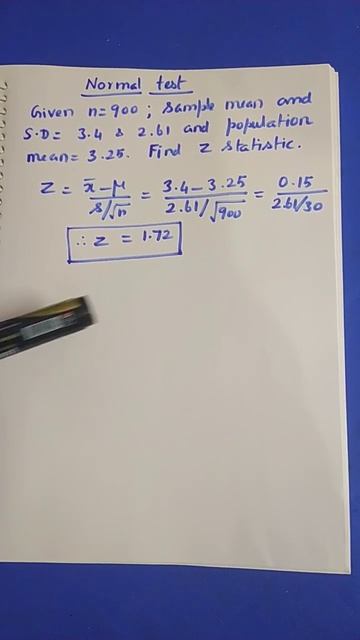 Normal test
Given n=900 ; Sample mean and
S.D= 3.4 & 2.61 and population
mean= 3.25. Find Z Statistic.
Z = x̄-μ / s/√n = 3.4-3.25 / 2.61/√900 = 0.15 / 2.61/30
∴ Z = 1.72